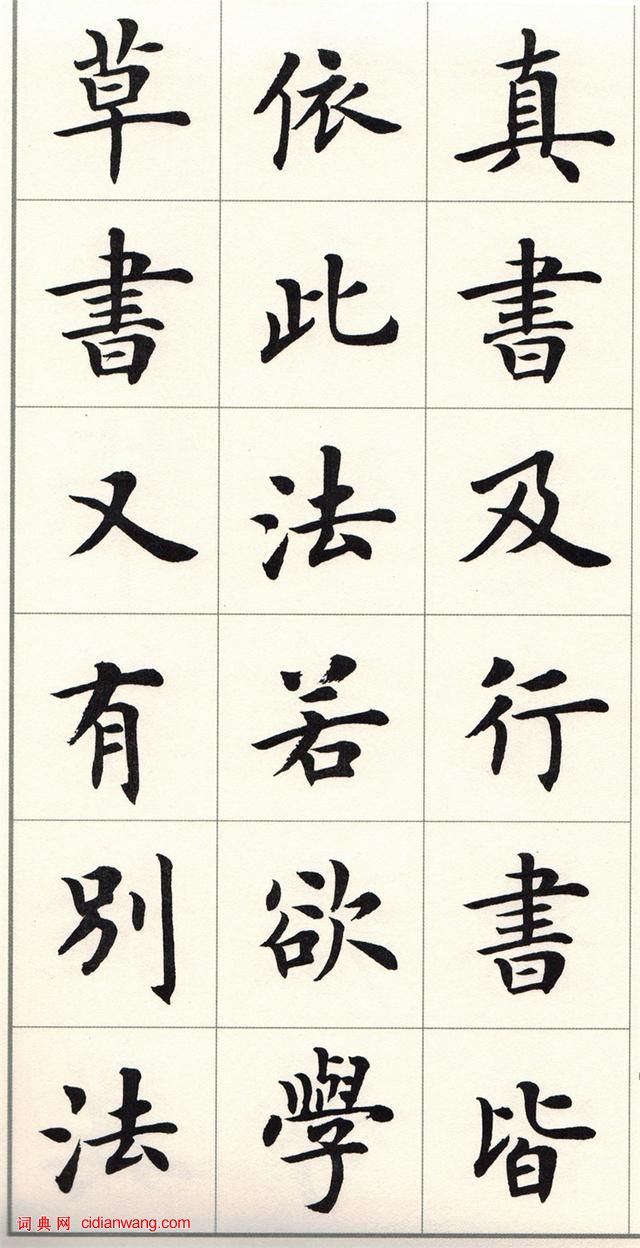 真書及行書皆
依此法若欲學
草書又有別法
词典网 cidianwang.com